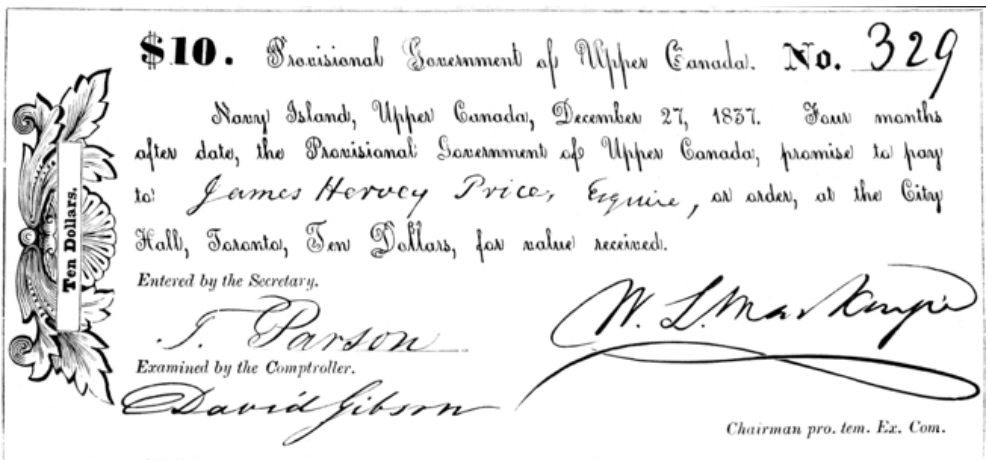 $10. Provisional Government of Upper Canada. No. 329
Navy Island, Upper Canada, December 27, 1837. Four months
after date, the Provisional Government of Upper Canada, promise to pay
to James Hervey Price, Esquire, or order, at the City
Hall, Toronto, Ten Dollars, for value received.
Ten Dollars.
Entered by the Secretary.
T. Parson
W. L. Mackenzie
Examined by the Comptroller.
David Gibson
Chairman pro. tem. Ex. Com.